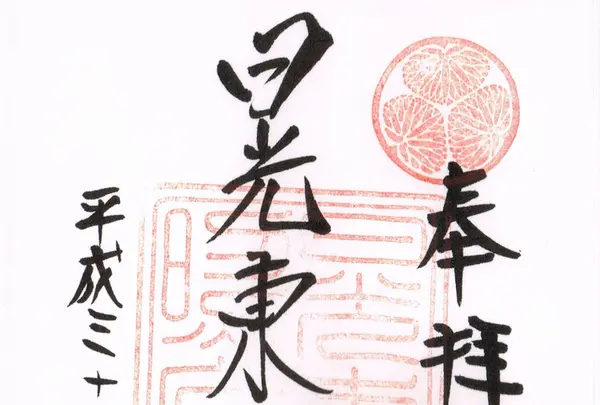 奉拝
日光東
平成三十